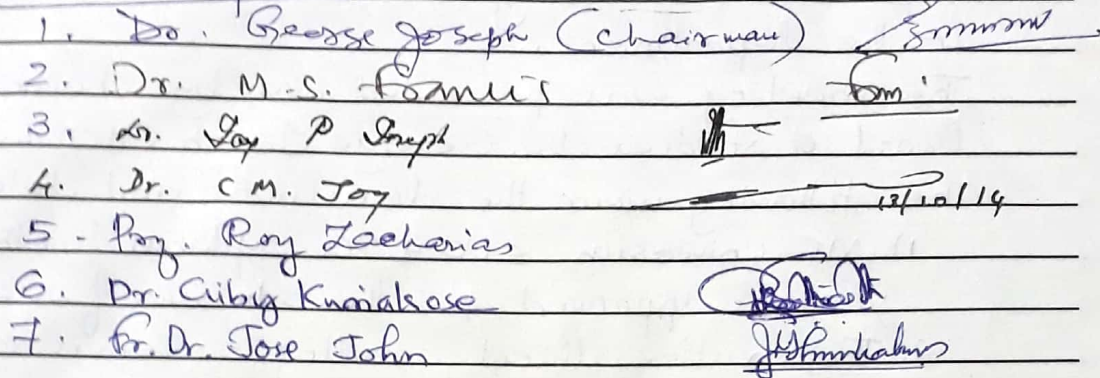 1. Dr. George Joseph (chairman)
2. Dr. M.S. Francis
3. Dr. Joy P Joseph
4. Dr. C M. Joy 13/10/14
5 - Prof. Roy Zacharias
6. Dr. Ciby Kuriakose
7. Fr. Dr. Jose John